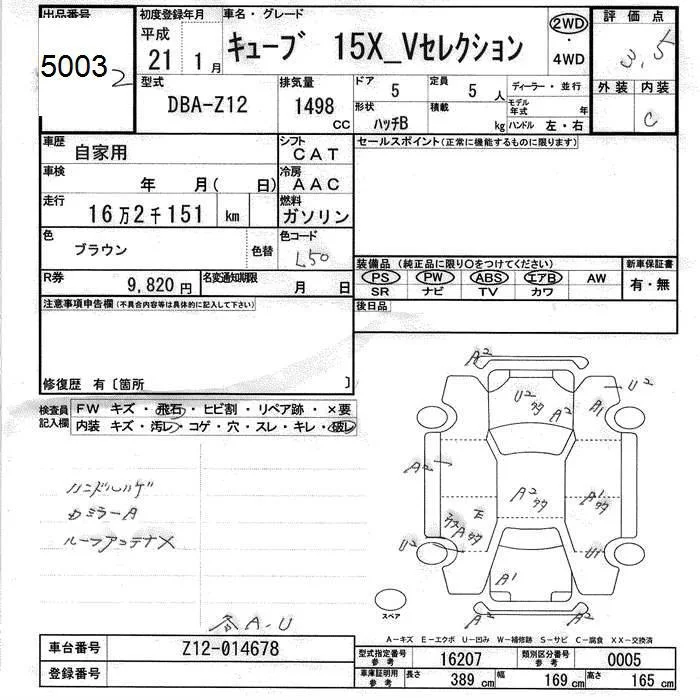 出品番号 初度登録年月 車名・グレード 2WD・4WD 評価点
5003 2 平成 21 1月 キューブ 15X_Vセレクション 3.5
型式 排気量 ドア 5 定員 5人 ディーラー・並行 外装 内装
DBA-Z12 1498 CC 形状 ハッチB 積載 kg モデル年式 年 ハンドル 左・右 C
車歴 自家用 シフト CAT セールスポイント(正常に機能するものに限ります)
車検 年 月( 日) 冷房 AAC
走行 16万2千151 km 燃料 ガソリン
色 ブラウン 色替 色コード L50
装備品 (純正品に限り○をつけてください) 新車保証書
R券 9,820円 名変通知期限 月 日 PS PW ABS エアB AW 有・無
SR ナビ TV カワ
注意事項申告欄(不具合内容等は具体的に記入して下さい) 後日品
修復歴 有〔箇所 〕
検査員記入欄 FW キズ・飛石・ヒビ割・リペア跡・×要
内装 キズ・汚レ・コゲ・穴・スレ・キレ・破レ
A2
U2
U2 A2 A1
A2 A2 A1
E
U2 A U1
A1
A2 A2
ハンドルハゲ
ルームアンテナX
スペア
各A-U
A-キズ E-エクボ U-凹み W-補修跡 S-サビ C-腐食 XX-交換済
車台番号 Z12-014678 型式指定番号 参考 16207 類別区分番号 参考 0005
登録番号 車庫証明用 参考 長さ 389cm 幅 169cm 高さ 165cm